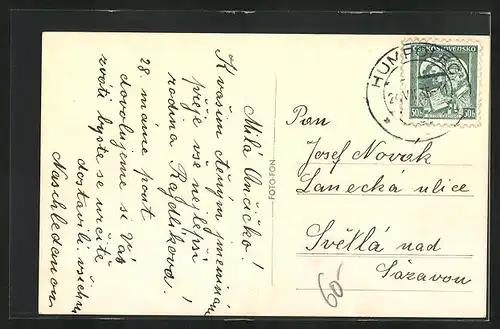 MiláAnčičko!
K vašim cteným jmeninám
přeje vše nejlepší
rodina Rajdlíkova!
28. máme pout
dovolujeme si Vás
pozvati byste se určitě
dostavili všichni
Naschledanou
FOTOFON
ČESKOSLOVENSKO
50h 50h
HUMPOLEC
Pan
Josef Novák
Lanecká ulice
Světlá nad
Sázavou
60-